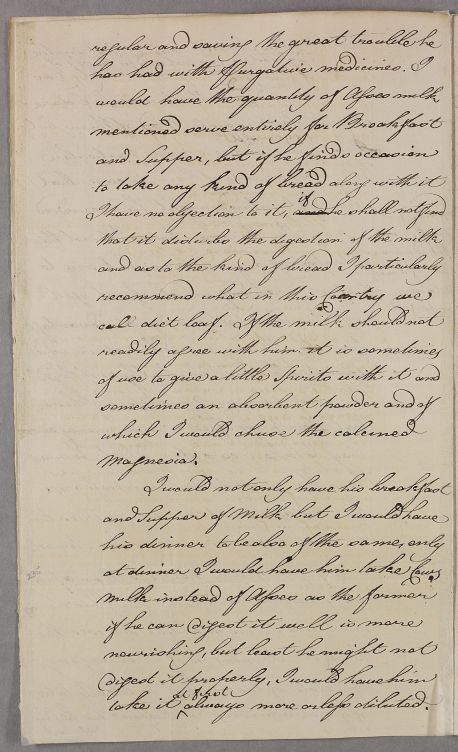 regular and saving the great trouble he
has had with Purgative medicines. I
would have the quantity of Asses milk
mentioned serve entirely for Breakfast
and Supper, but if he finds occasion
to take any kind of bread along with it
I have no objection to it, and if he shall not find
that it disturbs the digestion of the milk
and as to the kind of bread I particularly
recommend what in this Country we
call diet loaf. If the milk should not
readily agree with him it is sometimes
of use to give a little Spirits with it and
sometimes an absorbent powder and of
which I would chuse the calcined
Magnesia.
I would not only have his breakfast
and Supper of Milk but I would have
his dinner to be also of the same, only
at dinner I would have him take Cows
Milk instead of Asses as the former
if he can digest it well is more
nourishing, but least he might not
digest it properly, I would have him
take it at first always more or less diluted.